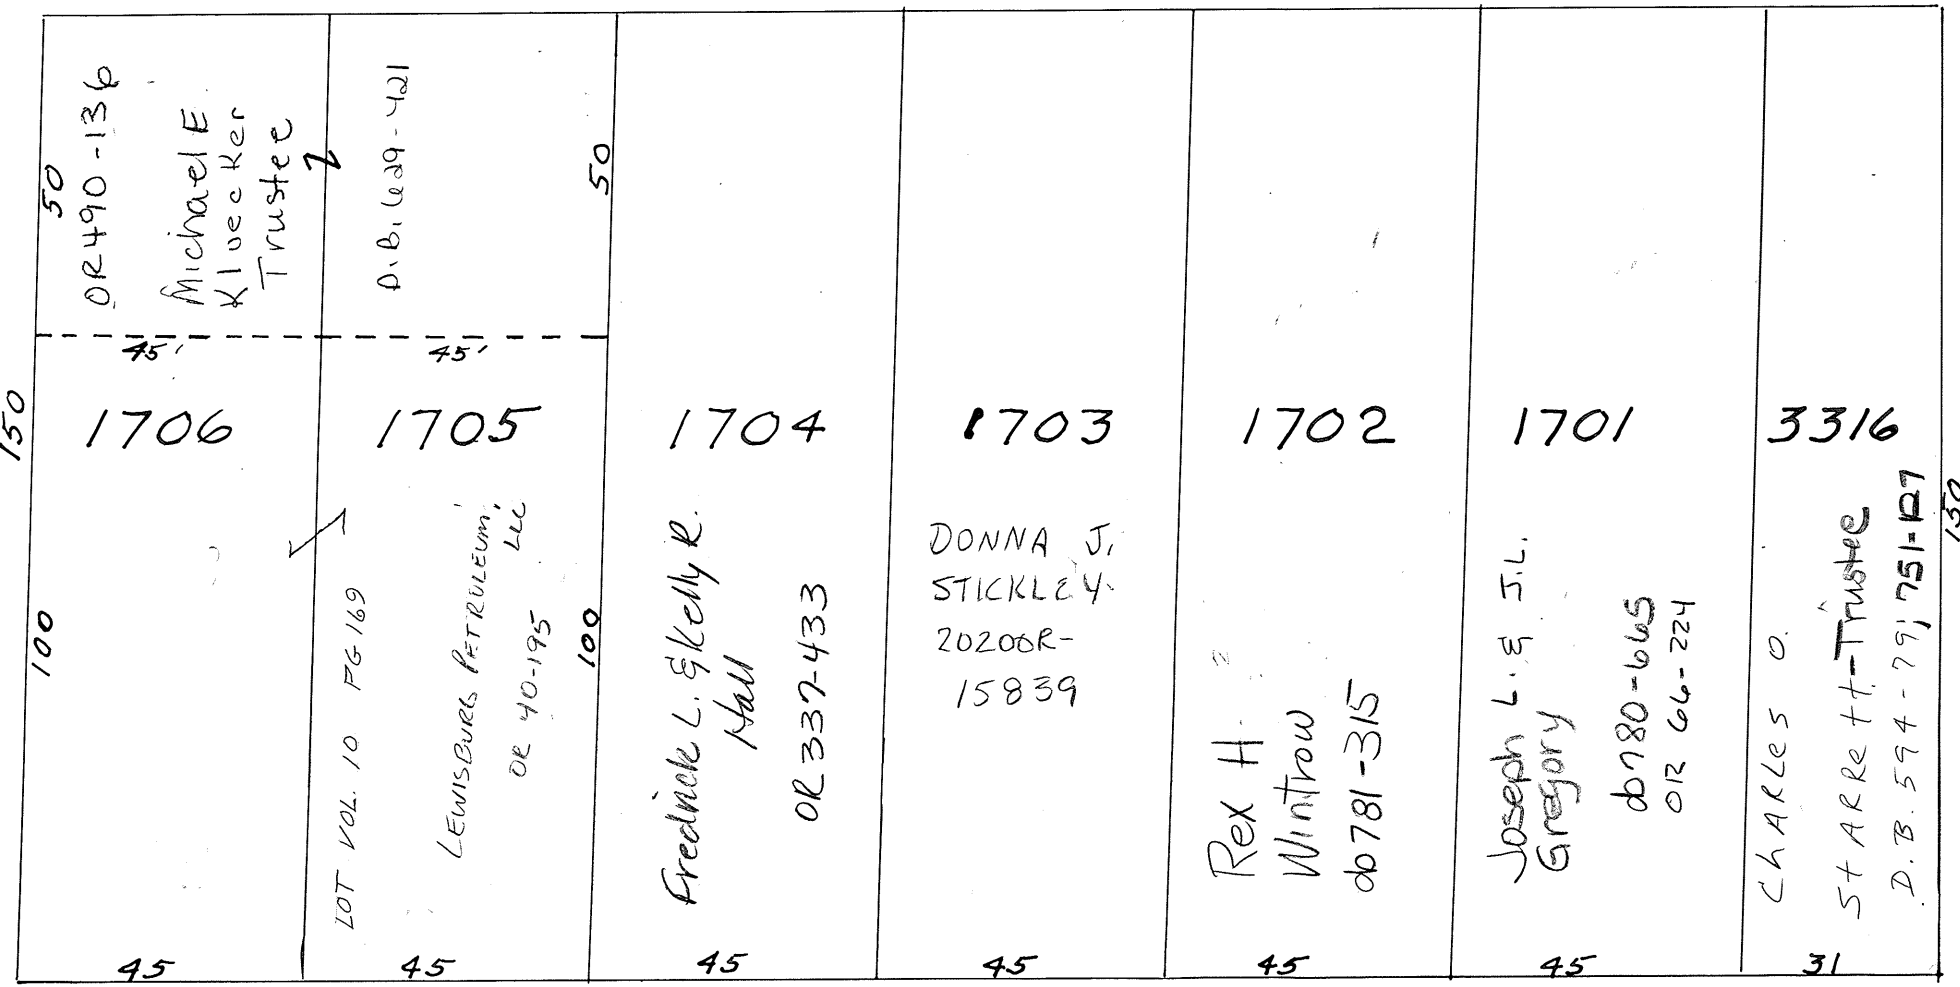 50
OR490-136
Michael E
Kluecker
Trustee
D.B. 629-421
50
45'
45'
150
1706
1705
1704
1703
1702
1701
3316
150
100
LOT VOL. 10 PG 169
LEWISBURG PETROLEUM,
LLC
OR 40-195
100
Fredrick L. & Kelly R.
Hall
OR 337-433
DONNA J.
STICKLEY
2020OR-
15839
Rex H.
Wintrow
db781-315
Joseph L. & J.L.
Gregory
db780-665
OR 66-224
ChARLes O.
StARRett-Trustee
D.B. 594-79; 751-127
45
45
45
45
45
45
31